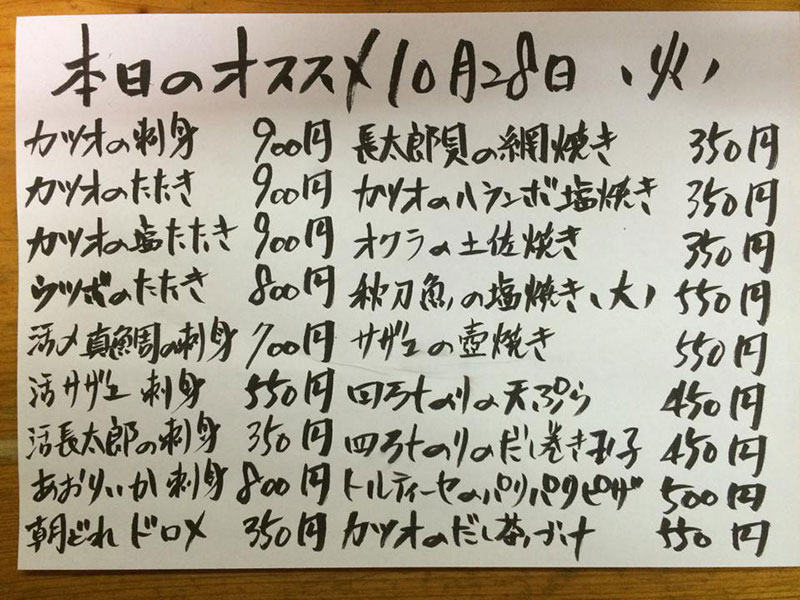 本日のオススメ10月28日(火)
カツオの刺身 900円
カツオのたたき 900円
カツオの塩たたき 900円
ウツボのたたき 800円
活〆真鯛の刺身 700円
活サザエ刺身 550円
活長太郎の刺身 350円
あおりいか刺身 800円
朝どれドロメ 350円
長太郎貝の網焼き 350円
カツオのハランボ塩焼き 350円
オクラの土佐焼き 350円
秋刀魚の塩焼き(大) 550円
サザエの壺焼き 550円
四万十のりの天ぷら 450円
四万十のりのだし巻き玉子 450円
トルティーヤのパリパリピザ 500円
カツオのだし茶づけ 550円